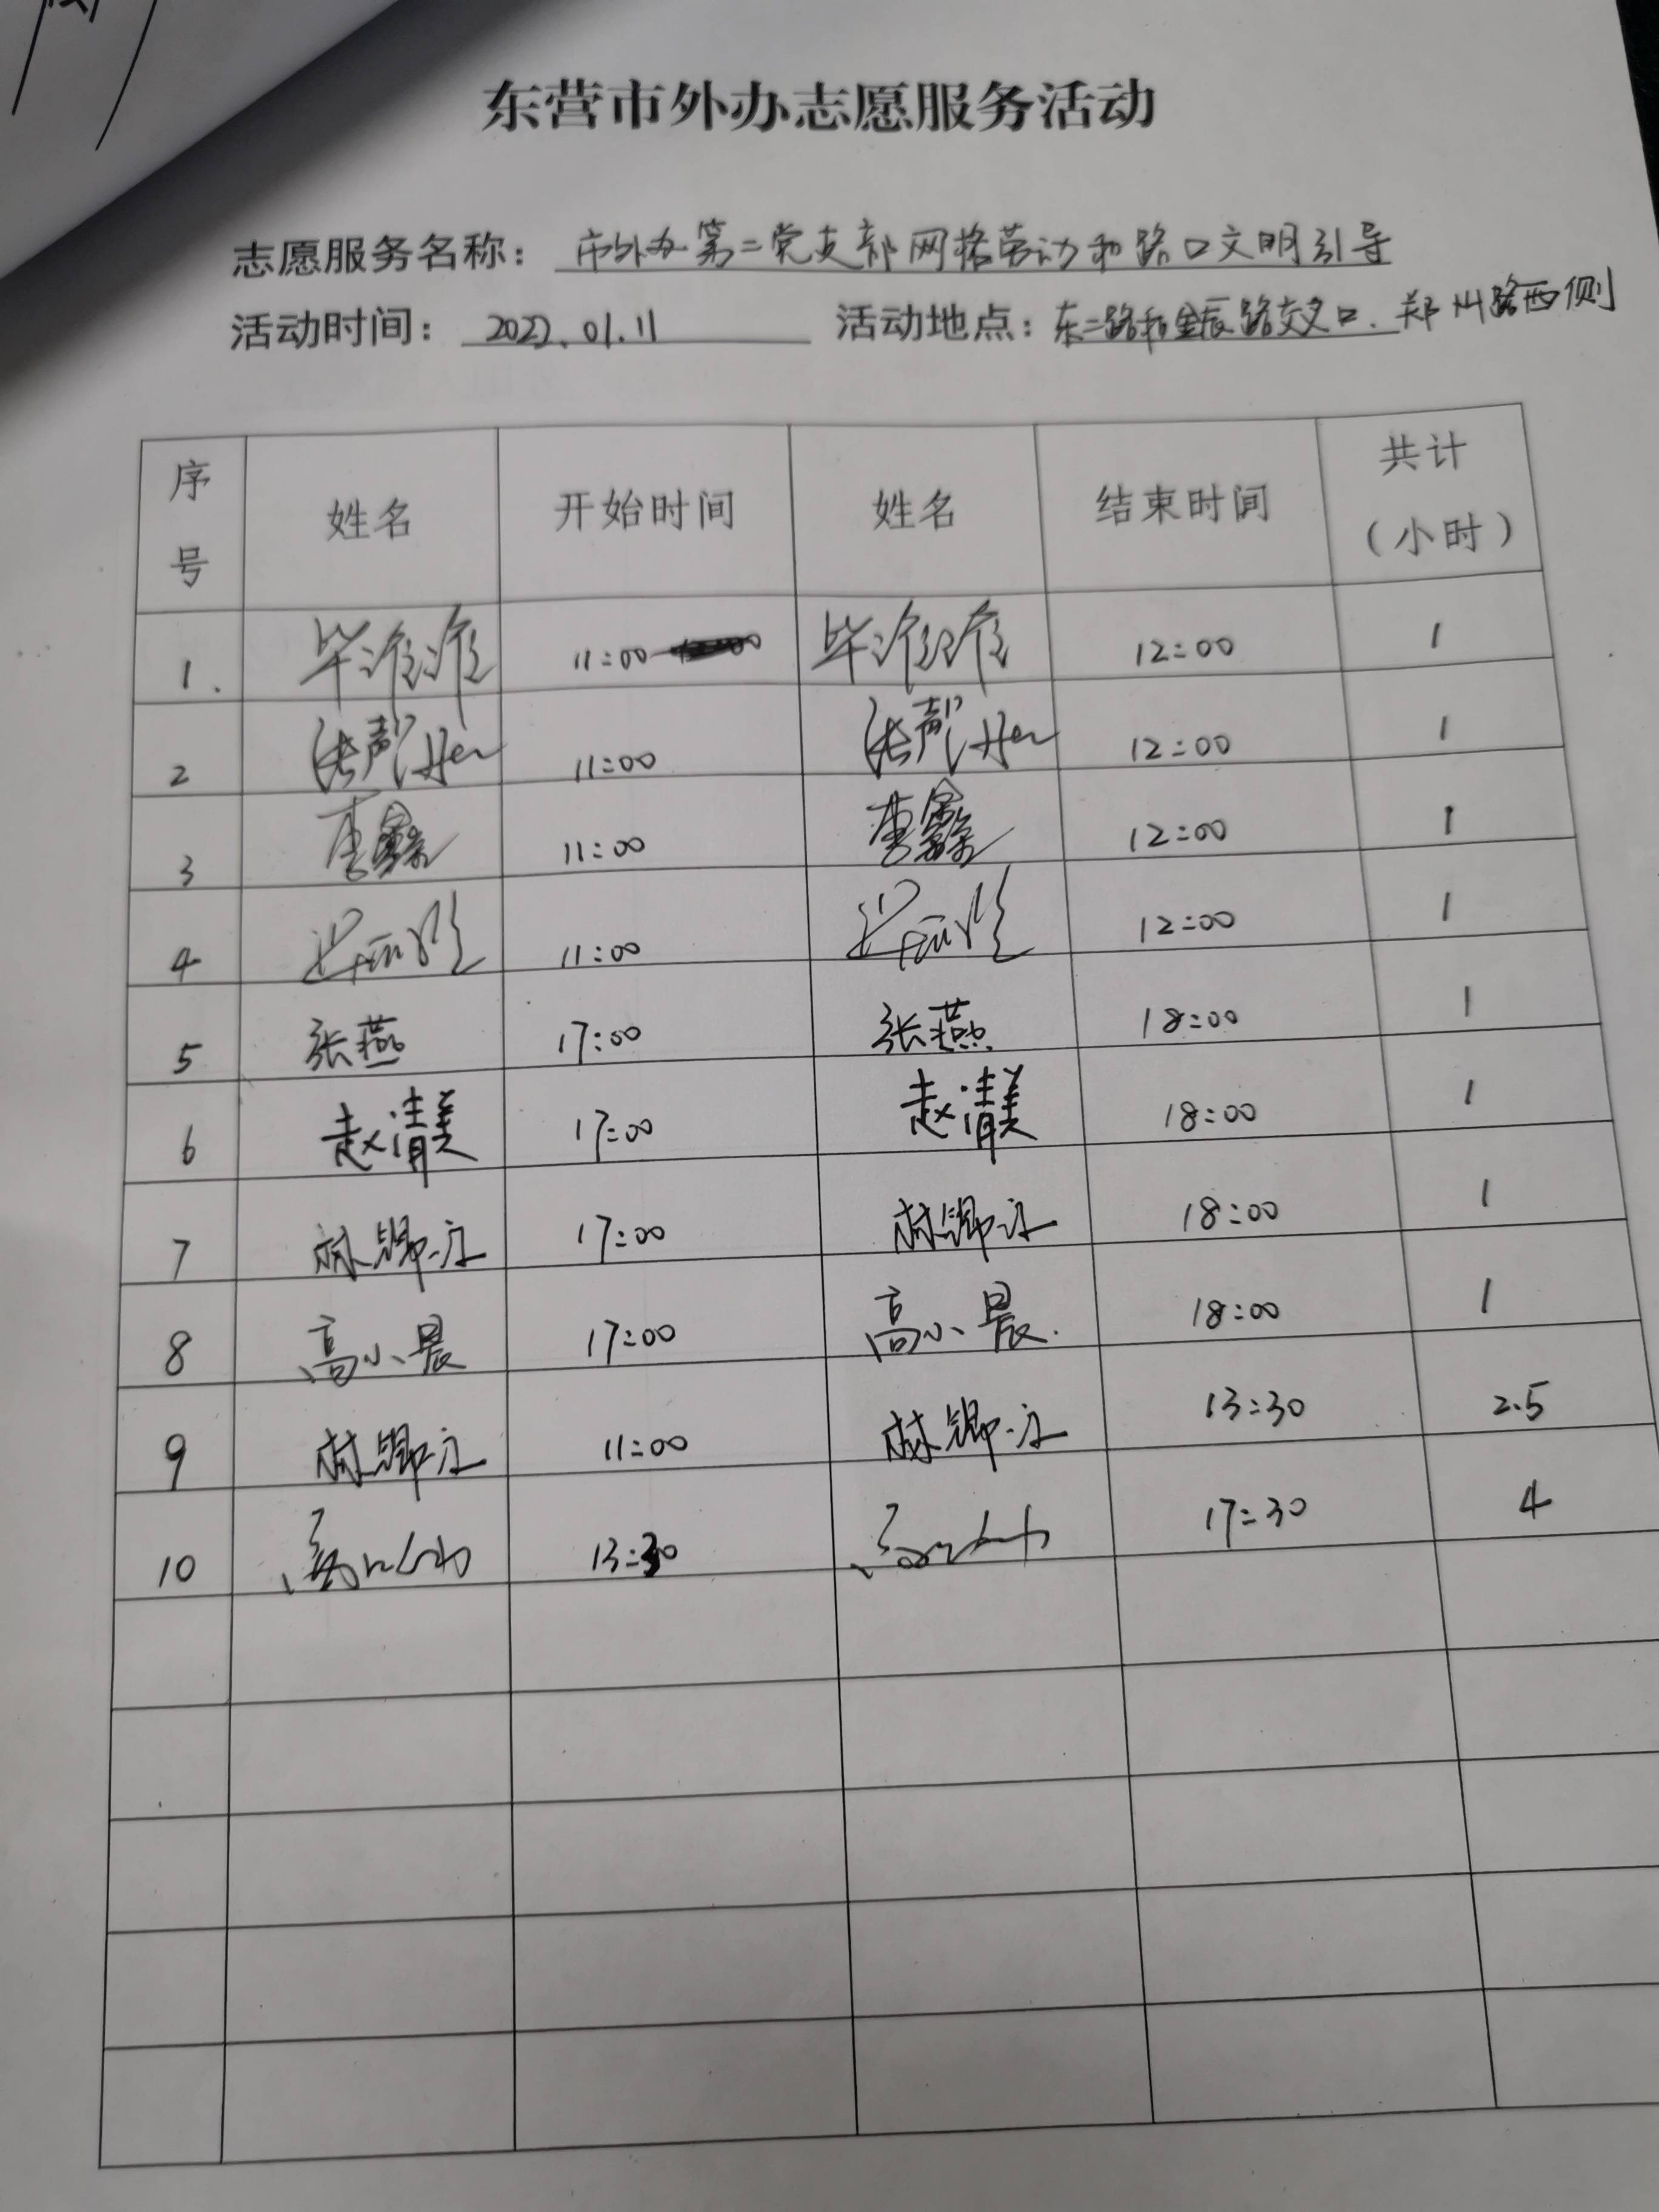 东营市外办志愿服务活动
志愿服务名称：市外办第二党支部网格劳动和路口文明引导
活动时间：2022.01.11 活动地点：东二路和金辰路交叉口、郑州路西侧
序号 姓名 开始时间 姓名 结束时间 共计（小时）
1. 毕淮淮 11:00 毕淮淮 12:00 1
2 11:00 12:00 1
3 李鑫 11:00 李鑫 12:00 1
4 11:00 12:00 1
5 张燕 17:00 张燕 18:00 1
6 赵清美 17:00 赵清美 18:00 1
7 17:00 18:00 1
8 高小晨 17:00 高小晨 18:00 1
9 11:00 13:30 2.5
10 13:30 17:30 4